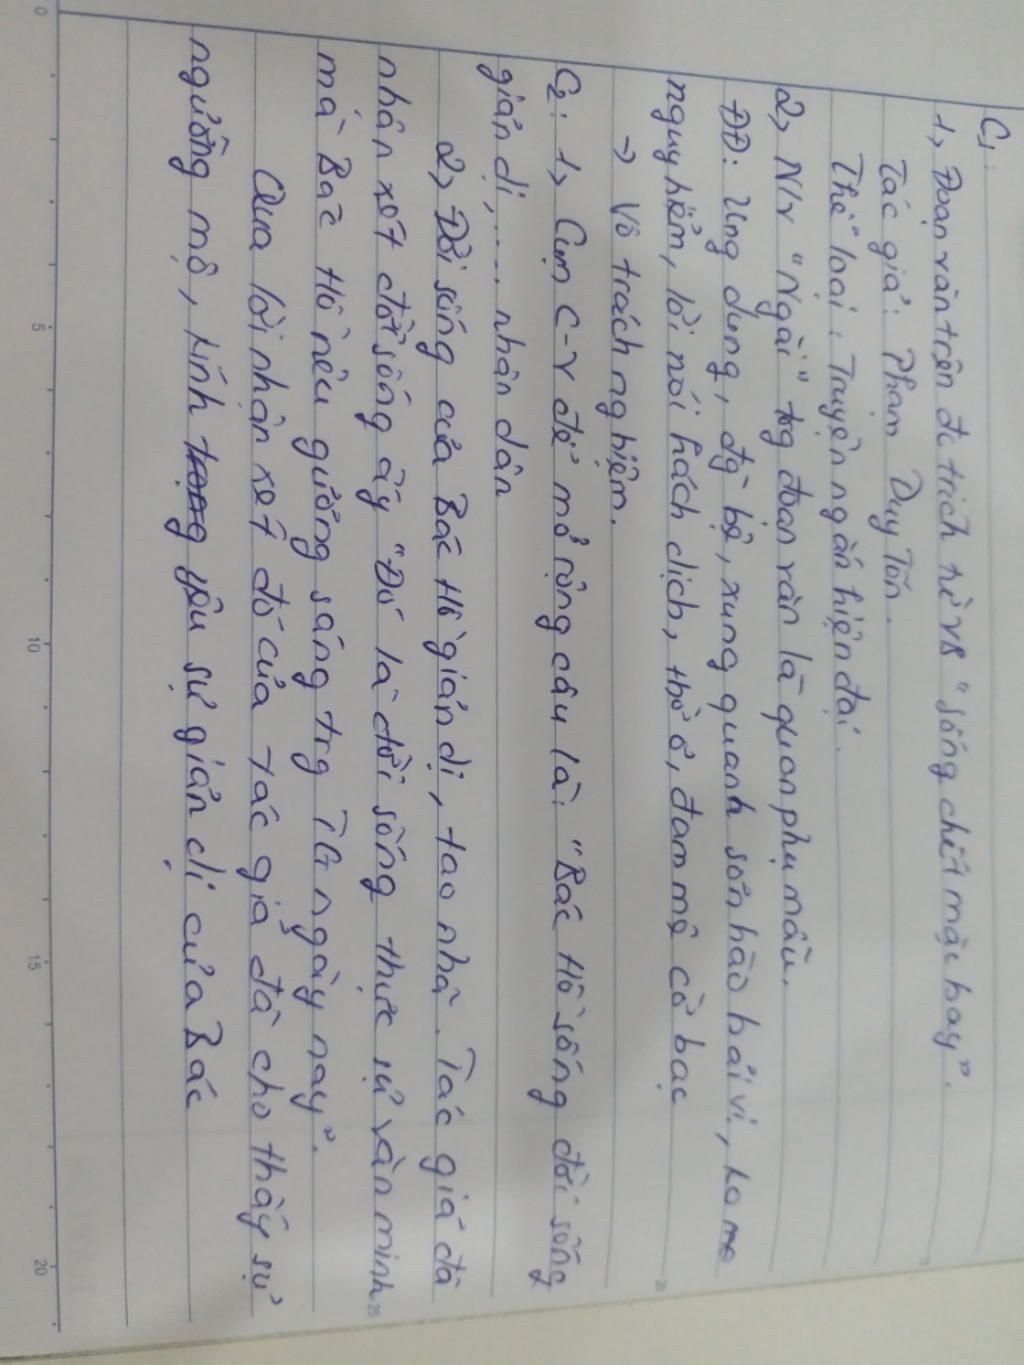 C1:
1, Đoạn văn trên đc trích từ VB "Sống chết mặc bay".
Tác giả: Phạm Duy Tốn.
Thể loại: Truyện ngắn hiện đại.
2, NV "Ngài" tg đoạn văn là quan phụ mẫu.
ĐĐ: Ung dung, đg bệ, xung quanh sơn hào hải vị, ko
nguy hiểm, lời nói hách dịch, thờ ơ, đam mê cờ bạc
→ Vô trách nghiệm.
C2: 1, Cụm C-V để mở rộng câu là: "Bác Hồ sống đời sống
giản dị,.... nhân dân
2, Đời sống của Bác Hồ giản dị, tao nhã. Tác giả đã
nhận xét đời sống ấy "Đó là đời sống thực sự văn minh
mà Bác Hồ nêu gương sáng trg TG ngày nay".
Qua lời nhận xét đó của tác giả đã cho thấy sự
ngưỡng mộ, kính yêu sự giản dị của Bác
0 5 10 15 20